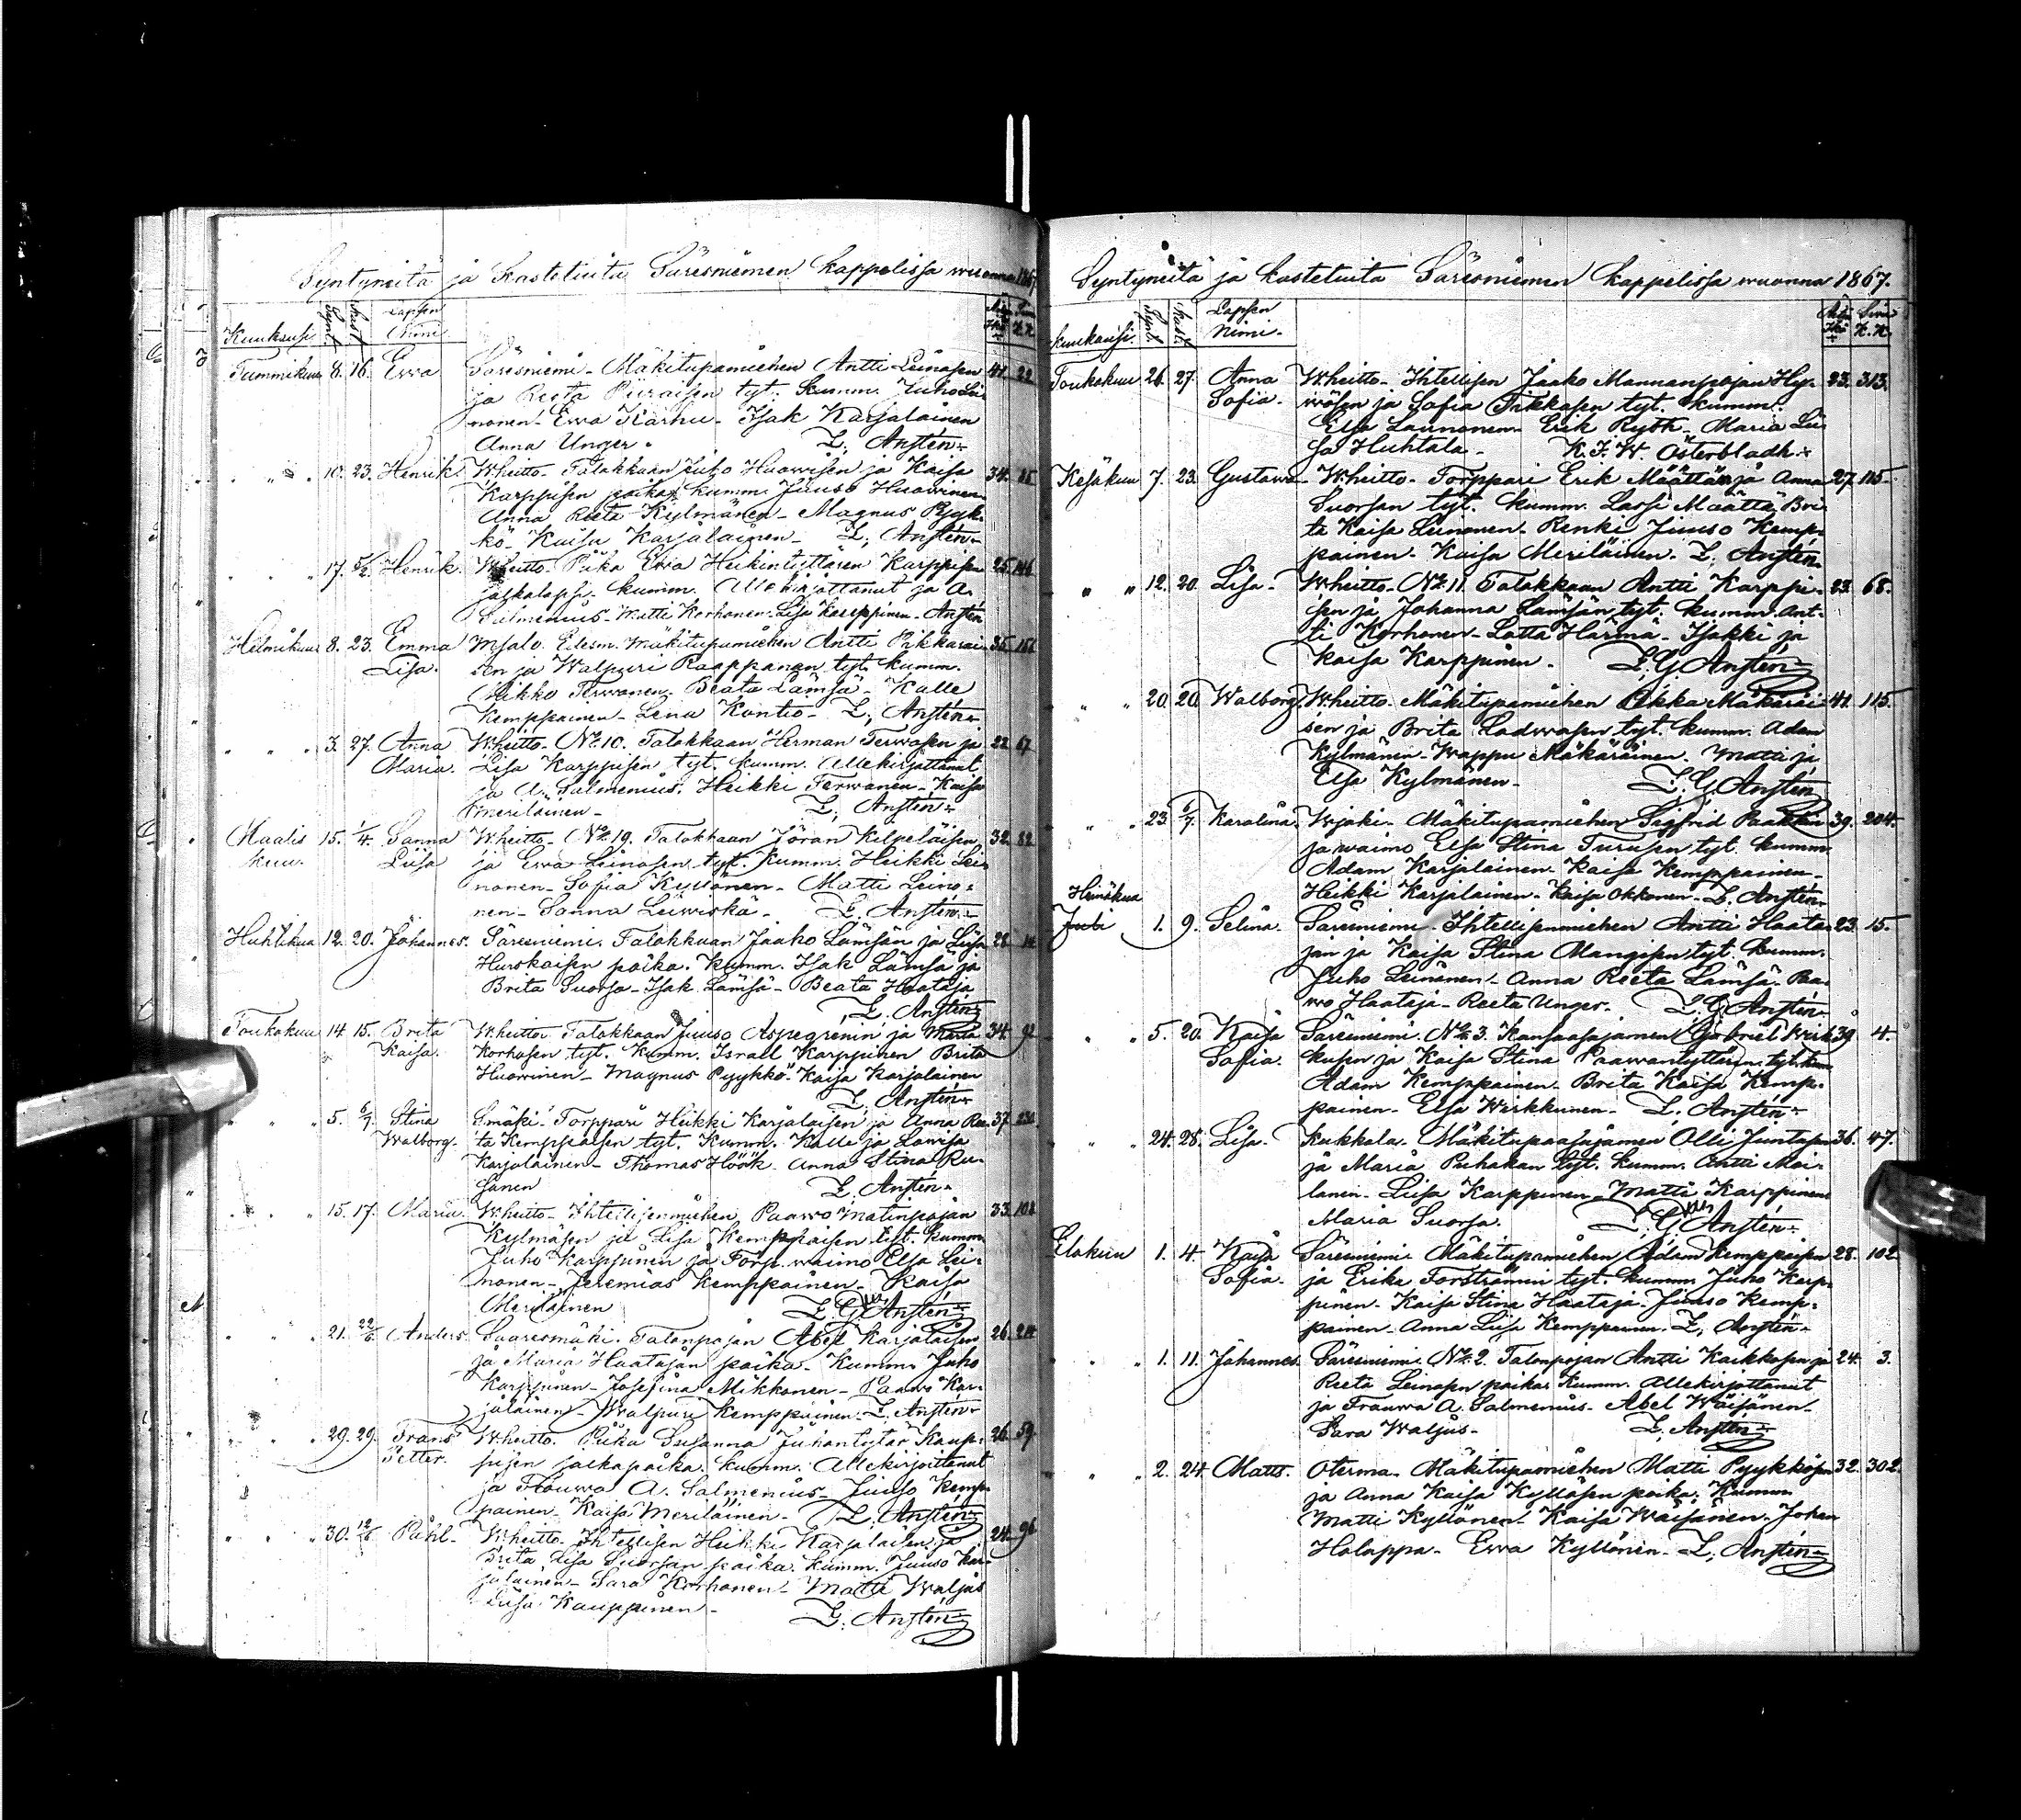 Syntyneitä ja Kastetuita Säresniemen kappelissa wuonna 1867.
Kuukausi Synt. Kast. Lapsen Nimi. Äidin Ikä Sivu K.K.
Tammikuu 8. 16. Ewa Säresniemi. Mäkitupamiehen Antti Leinosen 41. 22.
ja Reeta Piiraisen tyt. kumm. Juho Lei-
nonen. Ewa Karhu. Isak Karjalainen
Anna Unger. L. Anstén.
" " 10. 23. Henrik. W.heitto. Talokkaan Juho Huowisen ja Kaisa 34.
Karppisen poika. kumm. Juuso Huowinen
Anna Reeta Kylmänen. Magnus Pyyk-
kö. Kaisa Karjalainen. L. Anstén.
" " 17. 5/2. Henrik. W.heitto. Piika Ewa Heikintyttären Karppisen 25. 146
kumm. Allekirjottanut ja A.
Salmenius. Matti Korhonen. Lisa Karppinen. Anstén
Helmikuu 8. 23. Emma Mjalo. Mäkitupamiehen Antti Pikkarai- 35.
Lisa. sen ja Walpuri Raappanan tyt. kumm.
Mikko Terwonen. Beata Lämsä. Kalle
Kemppainen. Lena Kontio. L. Anstén.
" " 3. 27. Anna W.heitto. No 10. Talokkaan Herman Terwosen ja 22. 67.
Maria. Lisa Karppisen tyt. kumm. Allekirjottanut
ja A. Salmenius. Heikki Terwonen. Kaisa
Meriläinen. L. Anstén.
Maalis 15. 1/4. Sanna W.heitto. No 19. Talokkaan Jöran Kilpeläisen 32. 82.
kuu. Liisa ja Ewa Leinosen tyt. kumm. Heikki Lei-
nonen. Sofia Kyllönen. Matti Leino-
nen. Sanna Leiwiskä. L. Anstén.
Huhtikuu 12. 20. Johannes. Säresniemi. Talokkaan Jaako Lämsän ja Liisa 28.
Hurskaisen poika. kumm. Isak Lämsä ja
Brita Suorsa. Isak Lämsä. Beata Haataja
L. Anstén
Toukokuu 14. 15. Brita W.heitto. Talokkaan Juuso Aspegrenin ja Marta 34. 92.
Kaisa. Korhosen tyt. kumm. Israel Karppinen Brita
Huowinen. Magnus Pyykkö. Kaisa Karjalainen
L. Anstén.
" " 5. 6/7. Stina Torppari Heikki Karjalaisen ja Anna Ree- 37.
Walborg. ta Kemppaisen tyt. Kumm. Kalle ja Lowisa
Karjalainen. Thomas Höök. Anna Stina Ru-
sanen L. Anstén.
" " 15. 17. Maria. W.heitto. Ihtellisenmiehen Paawo Matinpojan 33. 104.
Kylmäsen ja Lisa Kemppaisen tyt. kumm.
Juho Karppinen ja Torp. waimo Elsa Lei-
nonen. Jeremias Kemppainen. Kaisa
Meriläinen L. G. Anstén.
" " 21. 22/6. Anders. Saaresmäki. Talonpojan Abel Karjalaisen 26.
ja Maria Haatajan poika. Kumm. Juho
Karppinen. Josefina Mikkonen. Paawo Kar-
jalainen. Walpuri Kemppainen. L. Anstén.
" " 29. 29. Frans W.heitto. Piika Susanna Juhontytär Kaup- 26. 59.
Petter. pisen poika. kumm. Allekirjoittanut
ja Frouwa A. Salmenius. Juuso Kemp-
painen. Kaisa Meriläinen. L. Anstén.
" " 30. 12/6. Påhl. W.heitto. Ihtellisen Heikki Karjalaisen ja 24. 96
Brita Lisa Suorsan poika. kumm. Juuso Kar-
jalainen. Sara Korhonen. Matti Waljus
Liisa Kauppinen. L. Anstén.
Syntyneitä ja kastetuita Säresniemen kappelissa wuonna 1867.
Kuukausi. Synt. Kast. Lapsen Nimi. Äidin Ikä Sivu K.K.
Toukokuu 26. 27. Anna W.heitto. Ihtellisen Jaako Mannanpojan Hy- 23. 313.
Sofia. wösen ja Sofia Tikkasen tyt. kumm.
Elsa Launonen. Erik Ryth. Maria Lii-
sa Huhtala. K. F. W. Österbladh.
Kesäkuu 7. 23. Gustawa W.heitto. Torppari Erik Määttän ja Anna 27. 115.
Suorsan tyt. kumm. Lassi Määttä Bri-
ta Kaisa Leinonen. Renki Juuso Kemp-
painen. Kaisa Meriläinen. L. Anstén.
" " 12. 20. Lisa. W.heitto. No 11. Talokkaan Antti Karppi- 23. 68.
sen ja Johanna Lämsän tyt. kumm. Ant-
ti Korhonen. Lotta Härmä. Isakki ja
Kaisa Karppinen. L. G. Anstén.
" " 20. 20. Walborg. W.heitto. Mäkitupamiehen Pekka Mäkäräi- 41. 115.
sen ja Brita Ladwosen tyt. kumm. Adam
Kylmänen. Wappu Mäkäräinen. Matti ja
Elsa Kylmänen. L. G. Anstén
" " 23. 6/7. Karolina. Wjoki. Mäkitupamiehen Sigfrid Paakki 39. 204.
ja waimo Elsa Stina Turusen tyt. kumm.
Adam Karjalainen. Kaisa Kemppainen.
Heikki Karjalainen. Kaisa Okkonen. L. Anstén.
Heinäkuu
Juli 1. 9. Selina. Säresniemi. Ihtellisenmiehen Antti Haata- 23. 15.
jan ja Kaisa Stina Mangisen tyt. kumm.
Juho Leinonen. Anna Reeta Lämsä. Paa-
wo Haataja. Reeta Unger. L. G. Anstén.
" " 5. 20. Kaisa Säresniemi No 3. Kansaasujamen Gabriel Wirk- 39. 4.
Sofia. kusen ja Kaisa Stina Paawontyttären tyt. kum.
Adam Kemppainen. Brita Kaisa Kemp-
painen. Elsa Wirkkunen. L. Anstén.
" " 24. 28. Lisa. Kukkola. Mäkitupaasujamen Olli Juntusen 36. 47.
ja Maria Puhakan tyt. kumm. Antti Moi-
lanen. Liisa Karppinen. Matti Karppinen
Maria Suorsa. L. G. Anstén.
Elokuu 1. 4. Kaisa Säresniemi Mäkitupamiehen Adam Kemppaisen 28. 102.
Sofia. ja Erika Forströmin tyt. kumm. Juho Karp-
pinen. Kaisa Stina Haataja. Juuso Kemp-
painen. Anna Liisa Kemppainen. L. Anstén.
" " 1. 11. Johannes. Säresniemi No 2. Talonpojan Antti Kaikkosen ja 24. 3.
Reeta Leinosen poika. Kumm. Allekirjottanut
ja Frouwa A. Salmenius. Abel Wäisänen.
Sara Waljus. L. Anstén.
" " 2. 24. Matts. Oterma. Mäkitupamiehen Matti Pyykkösen 32. 302.
ja Anna Kaisa Kyllösen poika. Kumm.
Matti Kyllönen. Kaisa Wäisänen. Johan
Holappa. Ewa Kyllönen. L. Anstén.